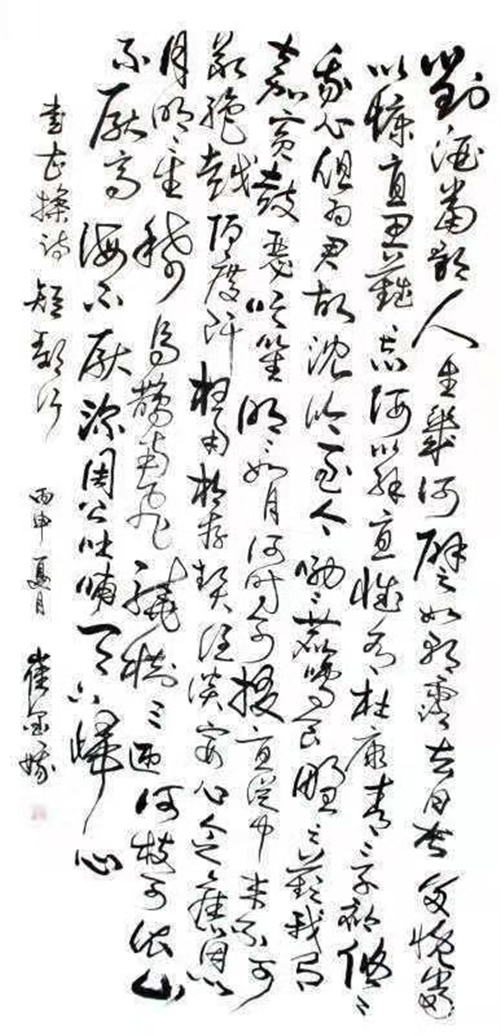 對酒當歌人生幾何譬如朝露去日苦多慨當
以慷憂思難忘何以解憂惟有杜康青々子衿悠々
我心但為君故沈吟至今呦々鹿鳴食野之苹我有
嘉賓鼓瑟吹笙明々如月何時可掇憂從中來不可
斷絕越陌度阡枉用相存契闊談宴心念舊恩
月明星稀烏鵲南飛繞樹三匝何枝可依山
不厭高海不厭深周公吐哺天下歸心
書曹操詩短歌行 丙申夏月 崔金娥